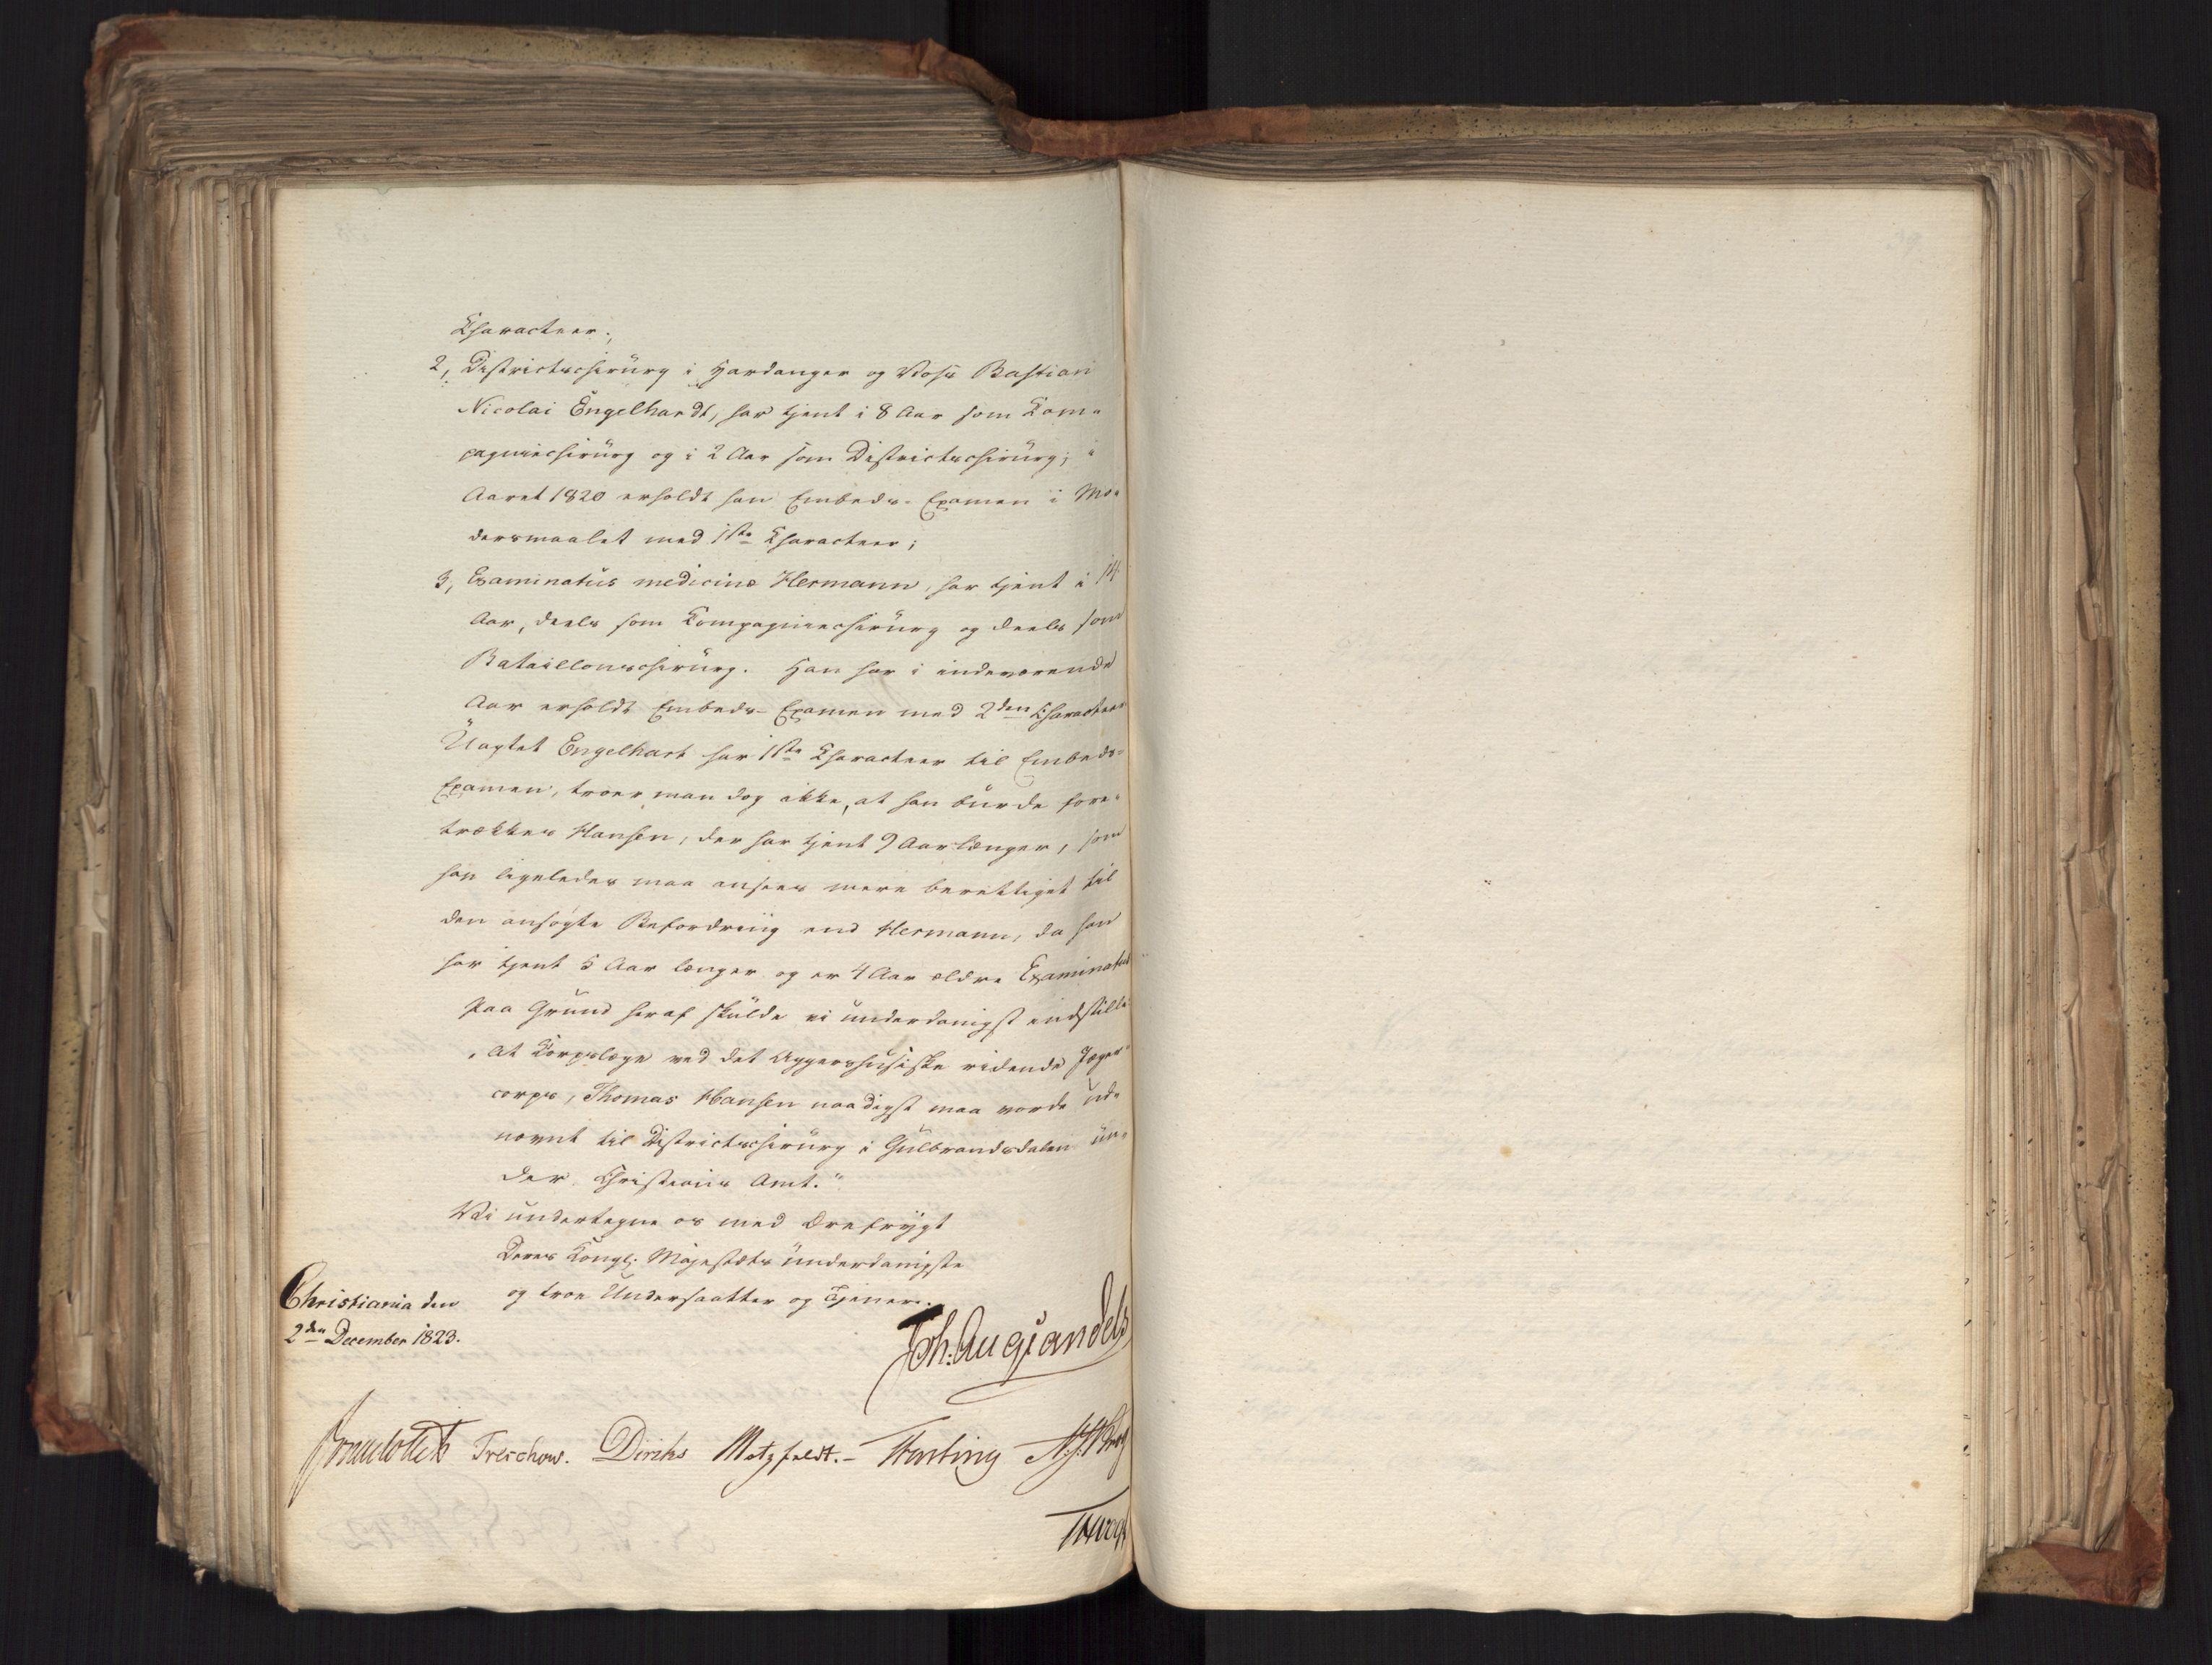 Characteer;
2, Districtschirurg i Hardanger og Voss Bastian
Nicolai Engelhardt, har tjent i 8 Aar som Kom-
pagniechirurg og i 2 Aar som Districtschirurg; i
Aaret 1820 erholdt han Embeds-Examen i Mo-
dersmaalet med 1ste Characteer;
3, Examinatus medicinæ Hermann, har tjent i 14
Aar, deels som Kompagniechirurg og deels som
Bataillonschirurg. Han har i indeværende
Aar erholdt Embeds-Examen med 2den Characteer
Uagtet Engelhart har 1ste Characteer til Embeds-
Examen, troer man dog ikke, at han burde fore-
trækkes Hansen, der har tjent 9 Aar længer, som
han ligeledes maa ansees mere berettiget til
den ansøgte Befordring end Hermann, da han
har tjent 5 Aar længer og er 4 Aar ældre Examinatus
Paa Grund heraf skulde vi underdanigst indstille
„At Korpslæge ved det Aggershusiske ridende Jæger-
corps, Thomas Hansen naadigst maa vorde ud-
nævnt til Districtschirurg i Gulbrandsdalen un-
der Christians Amt."
Vi undertegne os med Ærefrygt
Deres Kongl: Majestæts underdanigste
og troe Undersaatter og Tjenere.
Christiania den
2den December 1823.
Joh: Aug: Sandels
Treschow. Diriks Motzfeldt.- Fasting